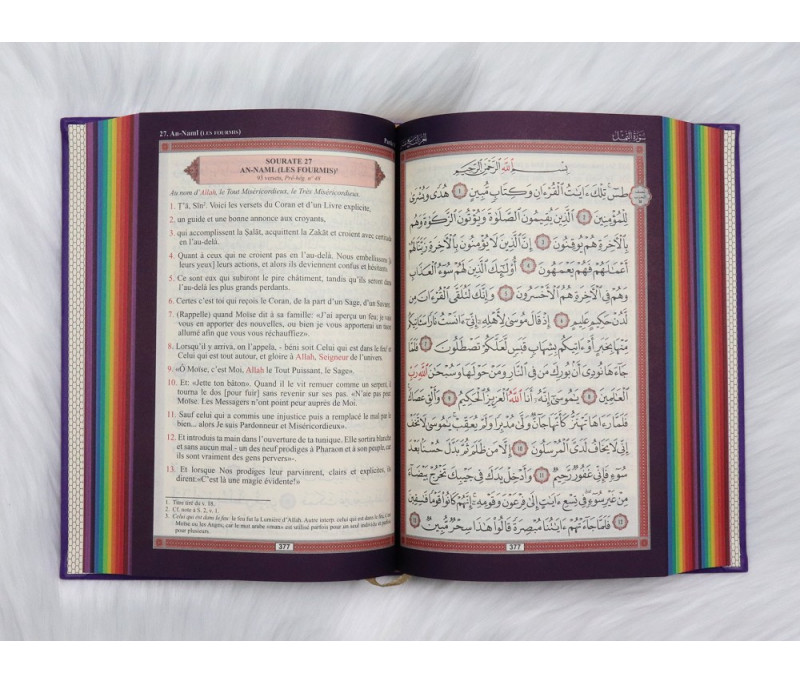 27. An-Naml (LES FOURMIS)
SOURATE 27
AN-NAML (LES FOURMIS)¹
93 versets, Pré-hég. n° 48
Au nom d'Allah, le Tout Miséricordieux, le Très Miséricordieux.
1. Tâ, Sîn². Voici les versets du Coran et d'un Livre explicite,
2. un guide et une bonne annonce aux croyants,
3. qui accomplissent la Ṣalât, acquittent la Zakât et croient avec certitude
en l'au-delà.
4. Quant à ceux qui ne croient pas en l'au-delà. Nous embellissons [à
leurs yeux] leurs actions, et alors ils deviennent confus et hésitants.
5. Ce sont eux qui subiront le pire châtiment, tandis qu'ils seront dans
l'au-delà les plus grands perdants.
6. Certes c'est toi qui reçois le Coran, de la part d'un Sage, d'un Savant.
7. (Rappelle) quand Moïse dit à sa famille: «J'ai aperçu un feu; je vais
vous en apporter des nouvelles, ou bien je vous apporterai un tison
allumé afin que vous vous réchauffiez».
8. Lorsqu'il y arriva, on l'appela, - béni soit Celui qui est dans le feu³ et
Celui qui est tout autour, et gloire à Allah, Seigneur de l'univers
9. «Ô Moïse, c'est Moi, Allah le Tout Puissant, le Sage».
10. Et: «Jette ton bâton». Quand il le vit remuer comme un serpent, il
tourna le dos [pour fuir] sans revenir sur ses pas. «N'aie pas peur
Moïse. Les Messagers n'ont point peur auprès de Moi.
11. Sauf celui qui a commis une injustice puis a remplacé le mal par le
bien... alors Je suis Pardonneur et Miséricordieux».
12. Et introduis ta main dans l'ouverture de ta tunique. Elle sortira blanche
et sans aucun mal - un des neuf prodiges à Pharaon et à son peuple, car
ils sont vraiment des gens pervers»-.
13. Et lorsque Nos prodiges leur parvinrent, clairs et explicites, ils
dirent:«C'est là une magie évidente!»
1. Titre tiré du v. 18.
2. Cf. note à S. 2, v. 1.
3. Celui qui est dans le feu: le feu fut la Lumière d'Allah. Autre interp. celui qui est dans le feu,
Moïse ou les Anges, car le mot arabe «man» est utilisé parfois pour un seul individu et parfois
pour plusieurs.
377
سورة النمل
بِسْمِ اللَّهِ الرَّحْمَٰنِ الرَّحِيمِ
طسٓ تِلْكَ ءَايَٰتُ الْقُرْءَانِ وَكِتَابٍ مُّبِينٍ ١ هُدًى وَبُشْرَىٰ
لِلْمُؤْمِنِينَ ٢ الَّذِينَ يُقِيمُونَ الصَّلَوٰةَ وَيُؤْتُونَ الزَّكَوٰةَ وَهُم
بِالْءَاخِرَةِ هُمْ يُوقِنُونَ ٣ إِنَّ الَّذِينَ لَا يُؤْمِنُونَ بِالْءَاخِرَةِ زَيَّنَّا لَهُمْ
أَعْمَٰلَهُمْ فَهُمْ يَعْمَهُونَ ٤ أُولَٰٓئِكَ الَّذِينَ لَهُمْ سُوٓءُ الْعَذَابِ
وَهُمْ فِي الْءَاخِرَةِ هُمُ الْأَخْسَرُونَ ٥ وَإِنَّكَ لَتُلَقَّى الْقُرْءَانَ مِن
لَّدُنْ حَكِيمٍ عَلِيمٍ ٦ إِذْ قَالَ مُوسَىٰ لِأَهْلِهِٓ إِنِّيٓ ءَانَسْتُ نَارًا سَـَٔاتِيكُم
مِّنْهَا بِخَبَرٍ أَوْ ءَاتِيكُم بِشِهَابٍ قَبَسٍ لَّعَلَّكُمْ تَصْطَلُونَ ٧ فَلَمَّا
جَآءَهَا نُودِيَ أَنۢ بُورِكَ مَن فِي النَّارِ وَمَنْ حَوْلَهَا وَسُبْحَٰنَ اللَّهِ رَبِّ
الْعَٰلَمِينَ ٨ يَٰمُوسَىٰٓ إِنَّهُٓ أَنَا اللَّهُ الْعَزِيزُ الْحَكِيمُ ٩ وَأَلْقِ عَصَاكَ
فَلَمَّا رَءَاهَا تَهْتَزُّ كَأَنَّهَا جَآنٌّ وَلَّىٰ مُدْبِرًا وَلَمْ يُعَقِّبْ يَٰمُوسَىٰ لَا تَخَفْ
إِنِّي لَا يَخَافُ لَدَيَّ الْمُرْسَلُونَ ١٠ إِلَّا مَن ظَلَمَ ثُمَّ بَدَّلَ حُسْنًۢا بَعْدَ
سُوٓءٍ فَإِنِّي غَفُورٌ رَّحِيمٌ ١١ وَأَدْخِلْ يَدَكَ فِي جَيْبِكَ تَخْرُجْ بَيْضَآءَ
مِنْ غَيْرِ سُوٓءٍ فِي تِسْعِ ءَايَٰتٍ إِلَىٰ فِرْعَوْنَ وَقَوْمِهِٓ إِنَّهُمْ كَانُوا قَوْمًا فَٰسِقِينَ
١٢ فَلَمَّا جَآءَتْهُمْ ءَايَٰتُنَا مُبْصِرَةً قَالُوا هَٰذَا سِحْرٌ مُّبِينٌ ١٣
377